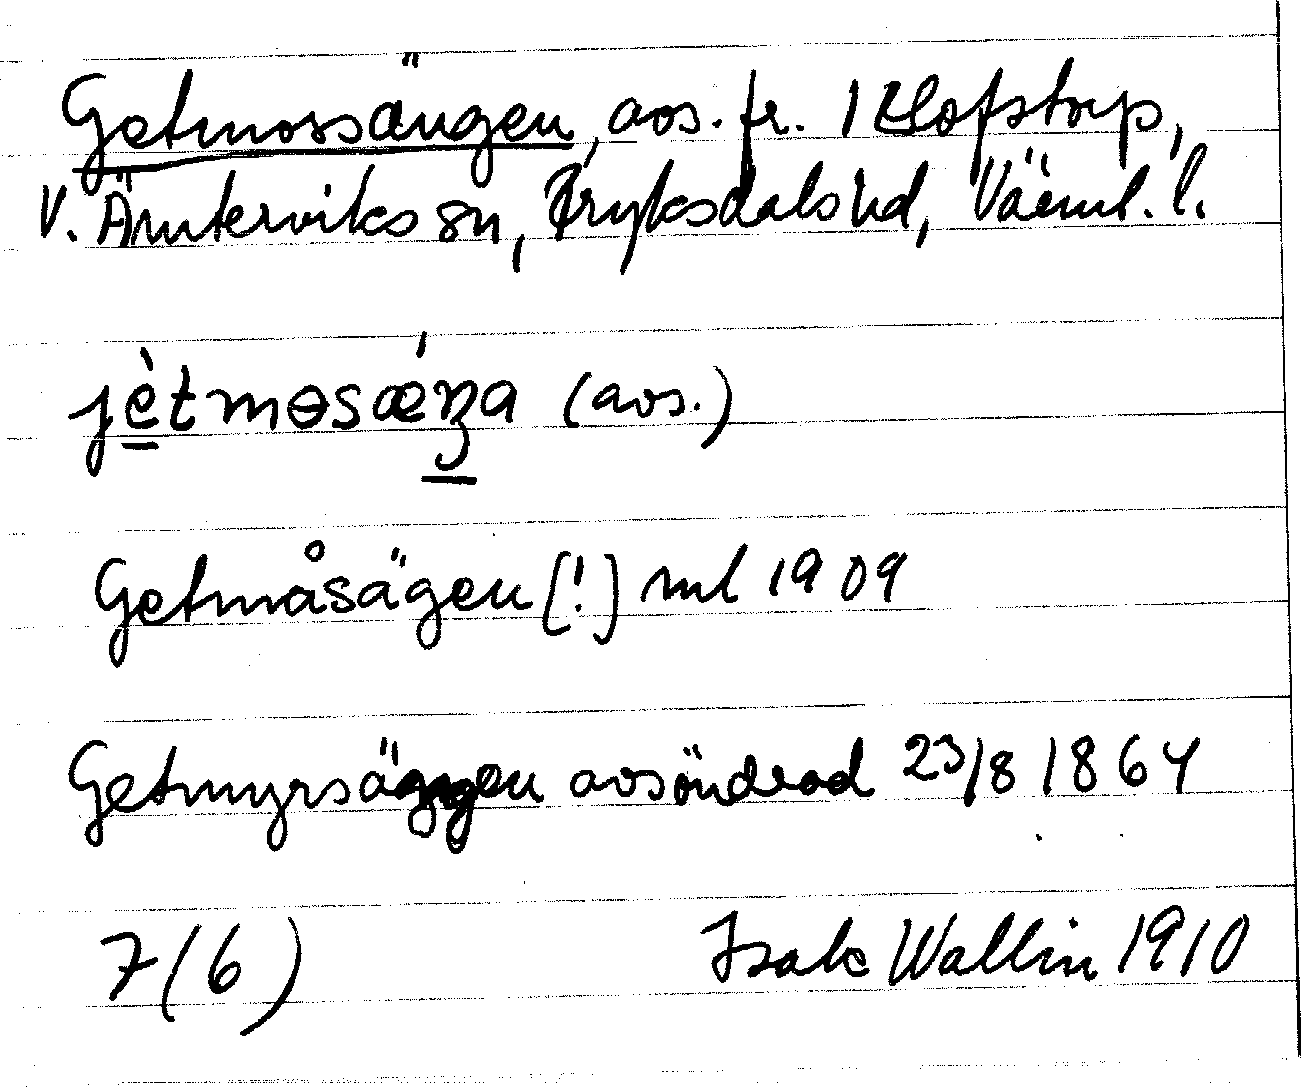 Getmossängen, avs. fr. 1 Olofstorp,
V. Ämterviks sn, Fryksdals hd, Värml. l.
jètmɵsǽŋa (avs.)
Getmåsägen [!] ml 1909
Getmyrsängen avsöndrad 23/8 1864
7(6) Isak Wallin 1910